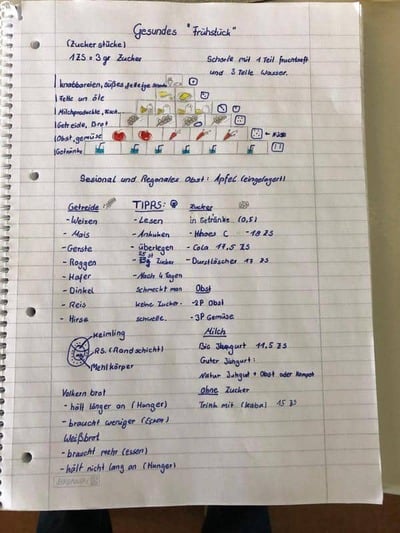 Gesundes "Frühstück"
(Zuckerstücke)
1 ZS = 3 gr Zucker
Schorle mit 1 Teil fruchtsaft
und 3 Teile Wasser.
knabbereien, süßes,
Fette un öle
Milchprodukte,
Getreide, Brot
Obst, gemüse
Getränke
Sesional und Regionales Obst: Apfel (eingelagert)
Getreide
- Weizen
- Mais
- Gerste
- Roggen
- Hafer
- Dinkel
- Reis
- Hirse
TIPPS:
- Lesen
- Ankuken
- überlegen
Zucker
- Nach 4 Tagen
schmeckt man
keine Zucker-
schwelle.
Zucker
in Getränke (0,5)
C - 18 ZS
- Cola 17.5 ZS
- Durstlöscher 13 ZS
Obst
- 2P Obst
- 3P Gemüse
Keimling
R.S. (Randschicht)
Mehlkörper
Milch
Bio Jungurt 11.5 ZS
Guter Jungurt:
Natur Juhgut + Obst oder Kompot
ohne Zucker
Trink mit (Kaba) 15 ZS
Volkern brot
- hält länger an (Hunger)
- braucht weniger (Essen)
Weißbrot
- braucht mehr (Essen)
- hält nicht lang an (Hunger)
BRUNNEN